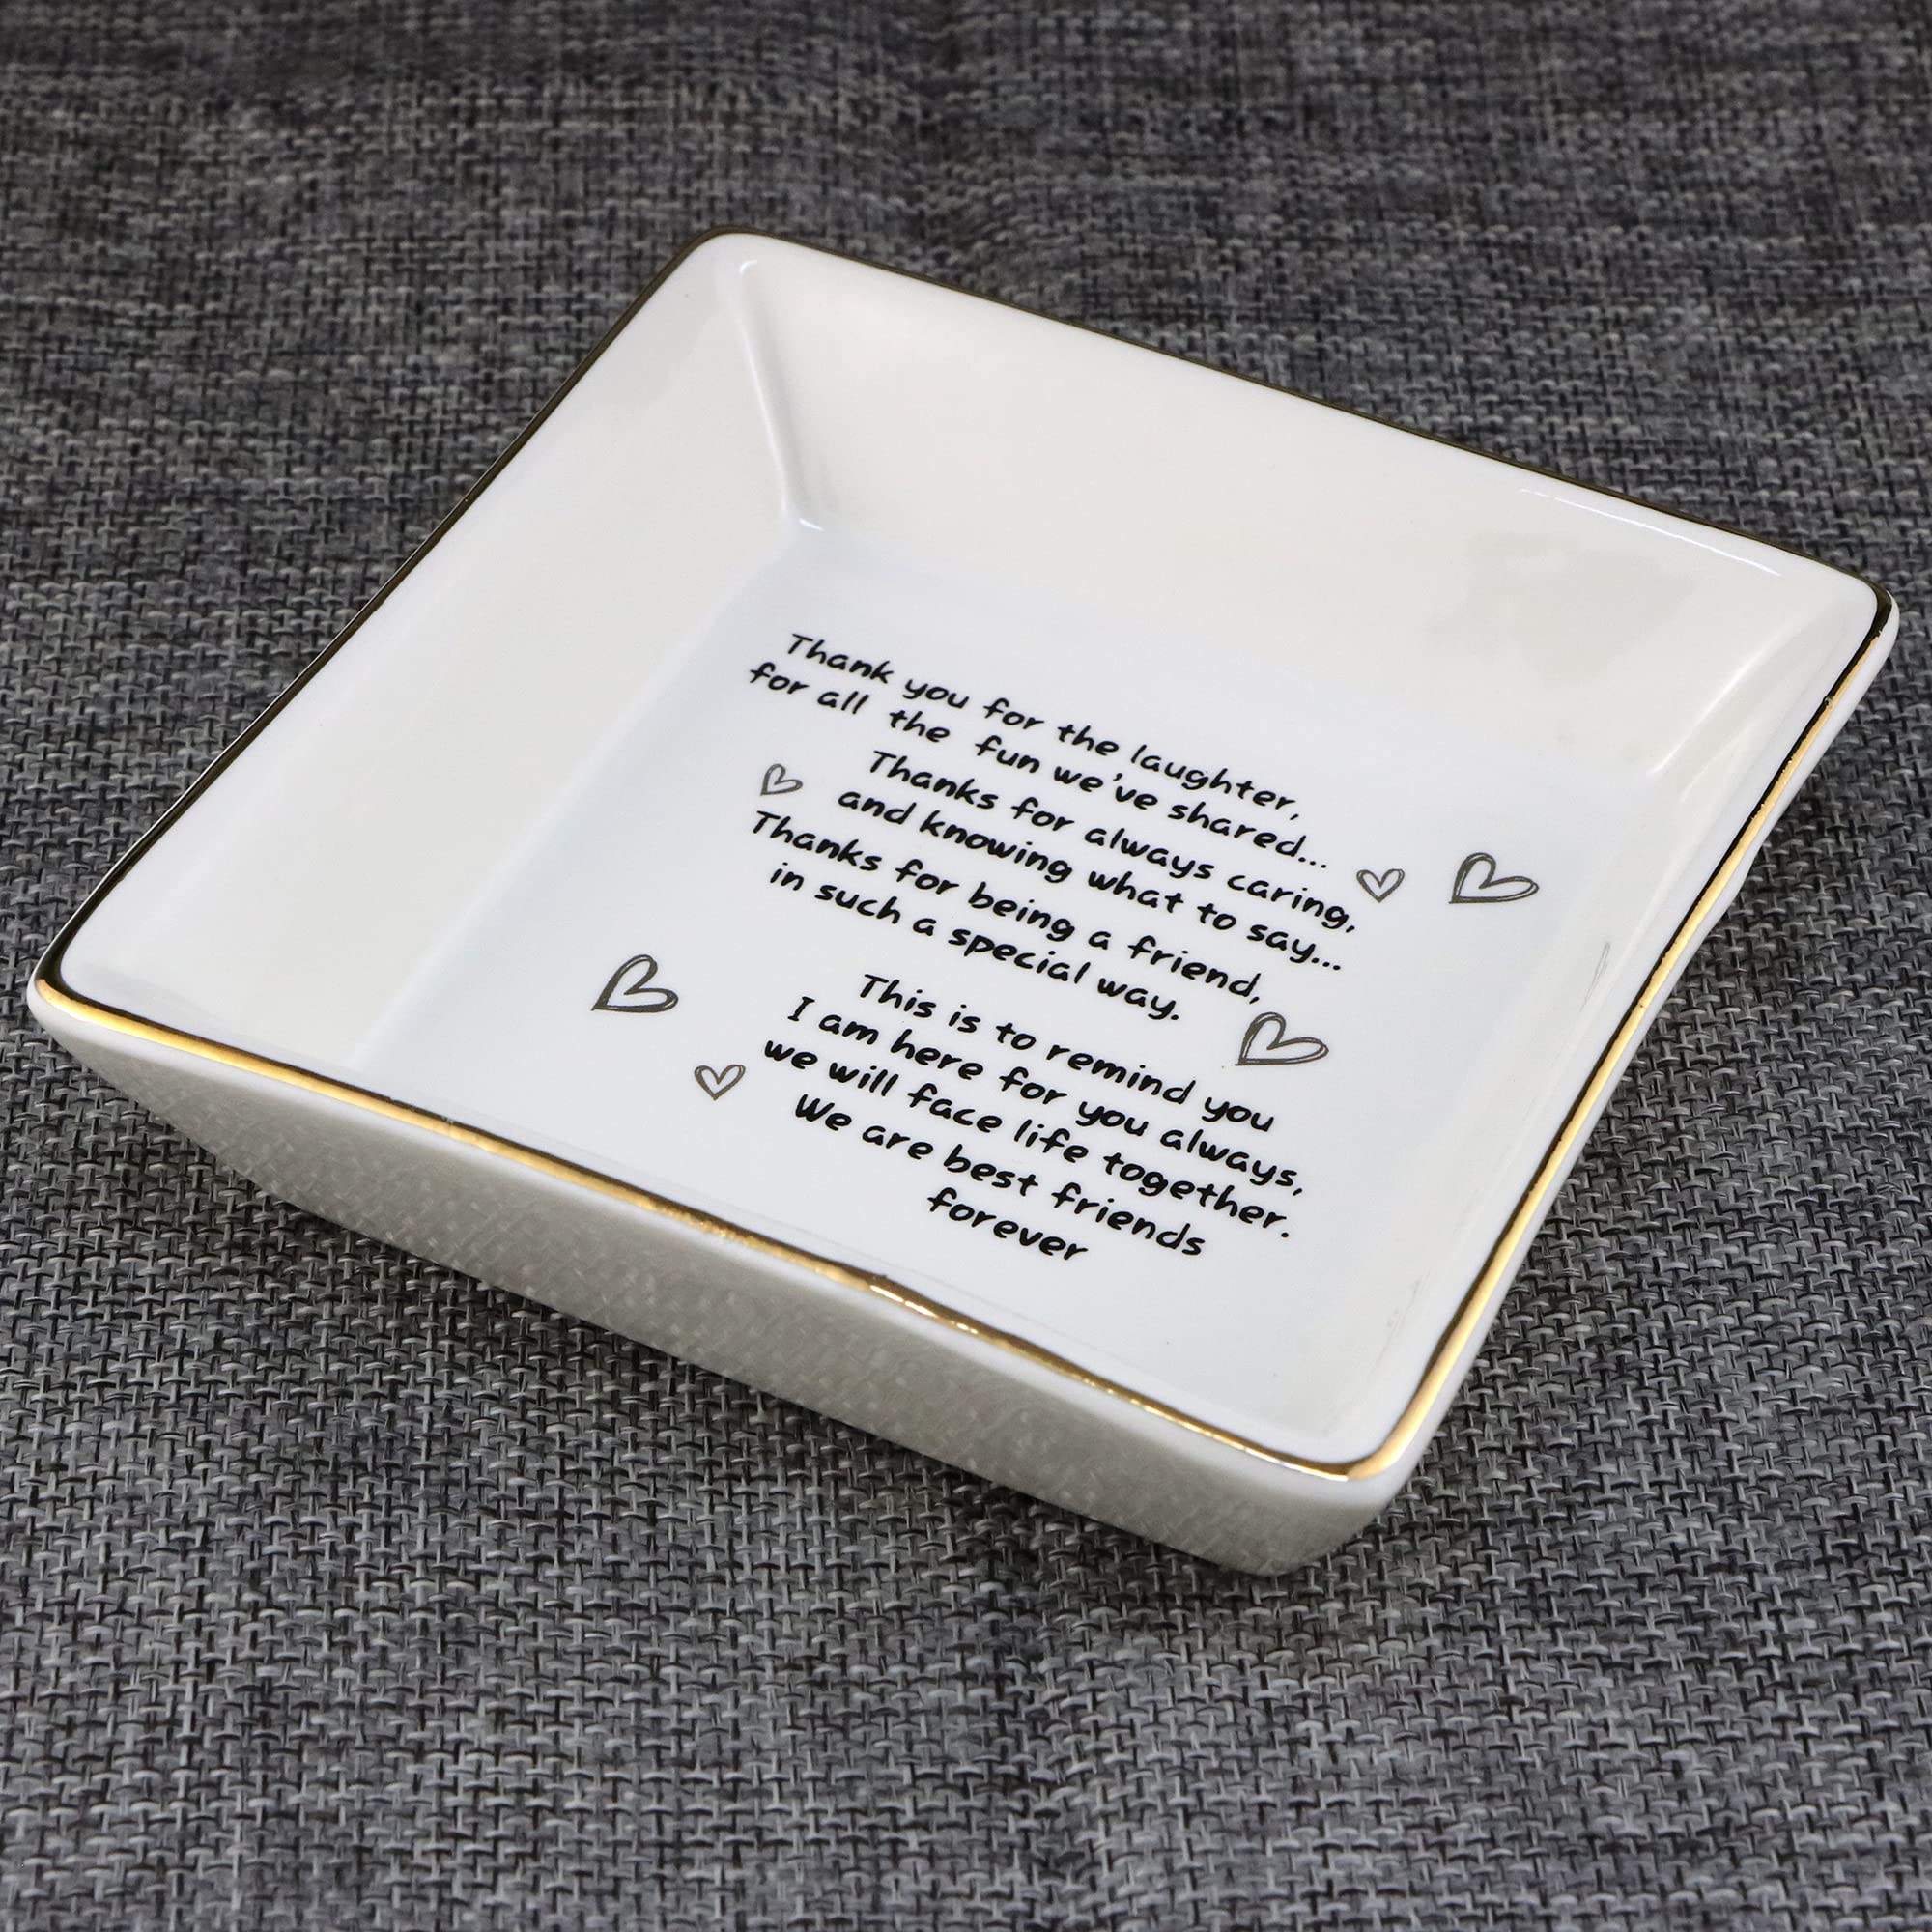 Thank you for the laughter,
for all the fun we've shared...
Thanks for always caring,
and knowing what to say...
Thanks for being a friend,
in such a special way.
This is to remind you
I am here for you always,
we will face life together.
We are best friends
forever